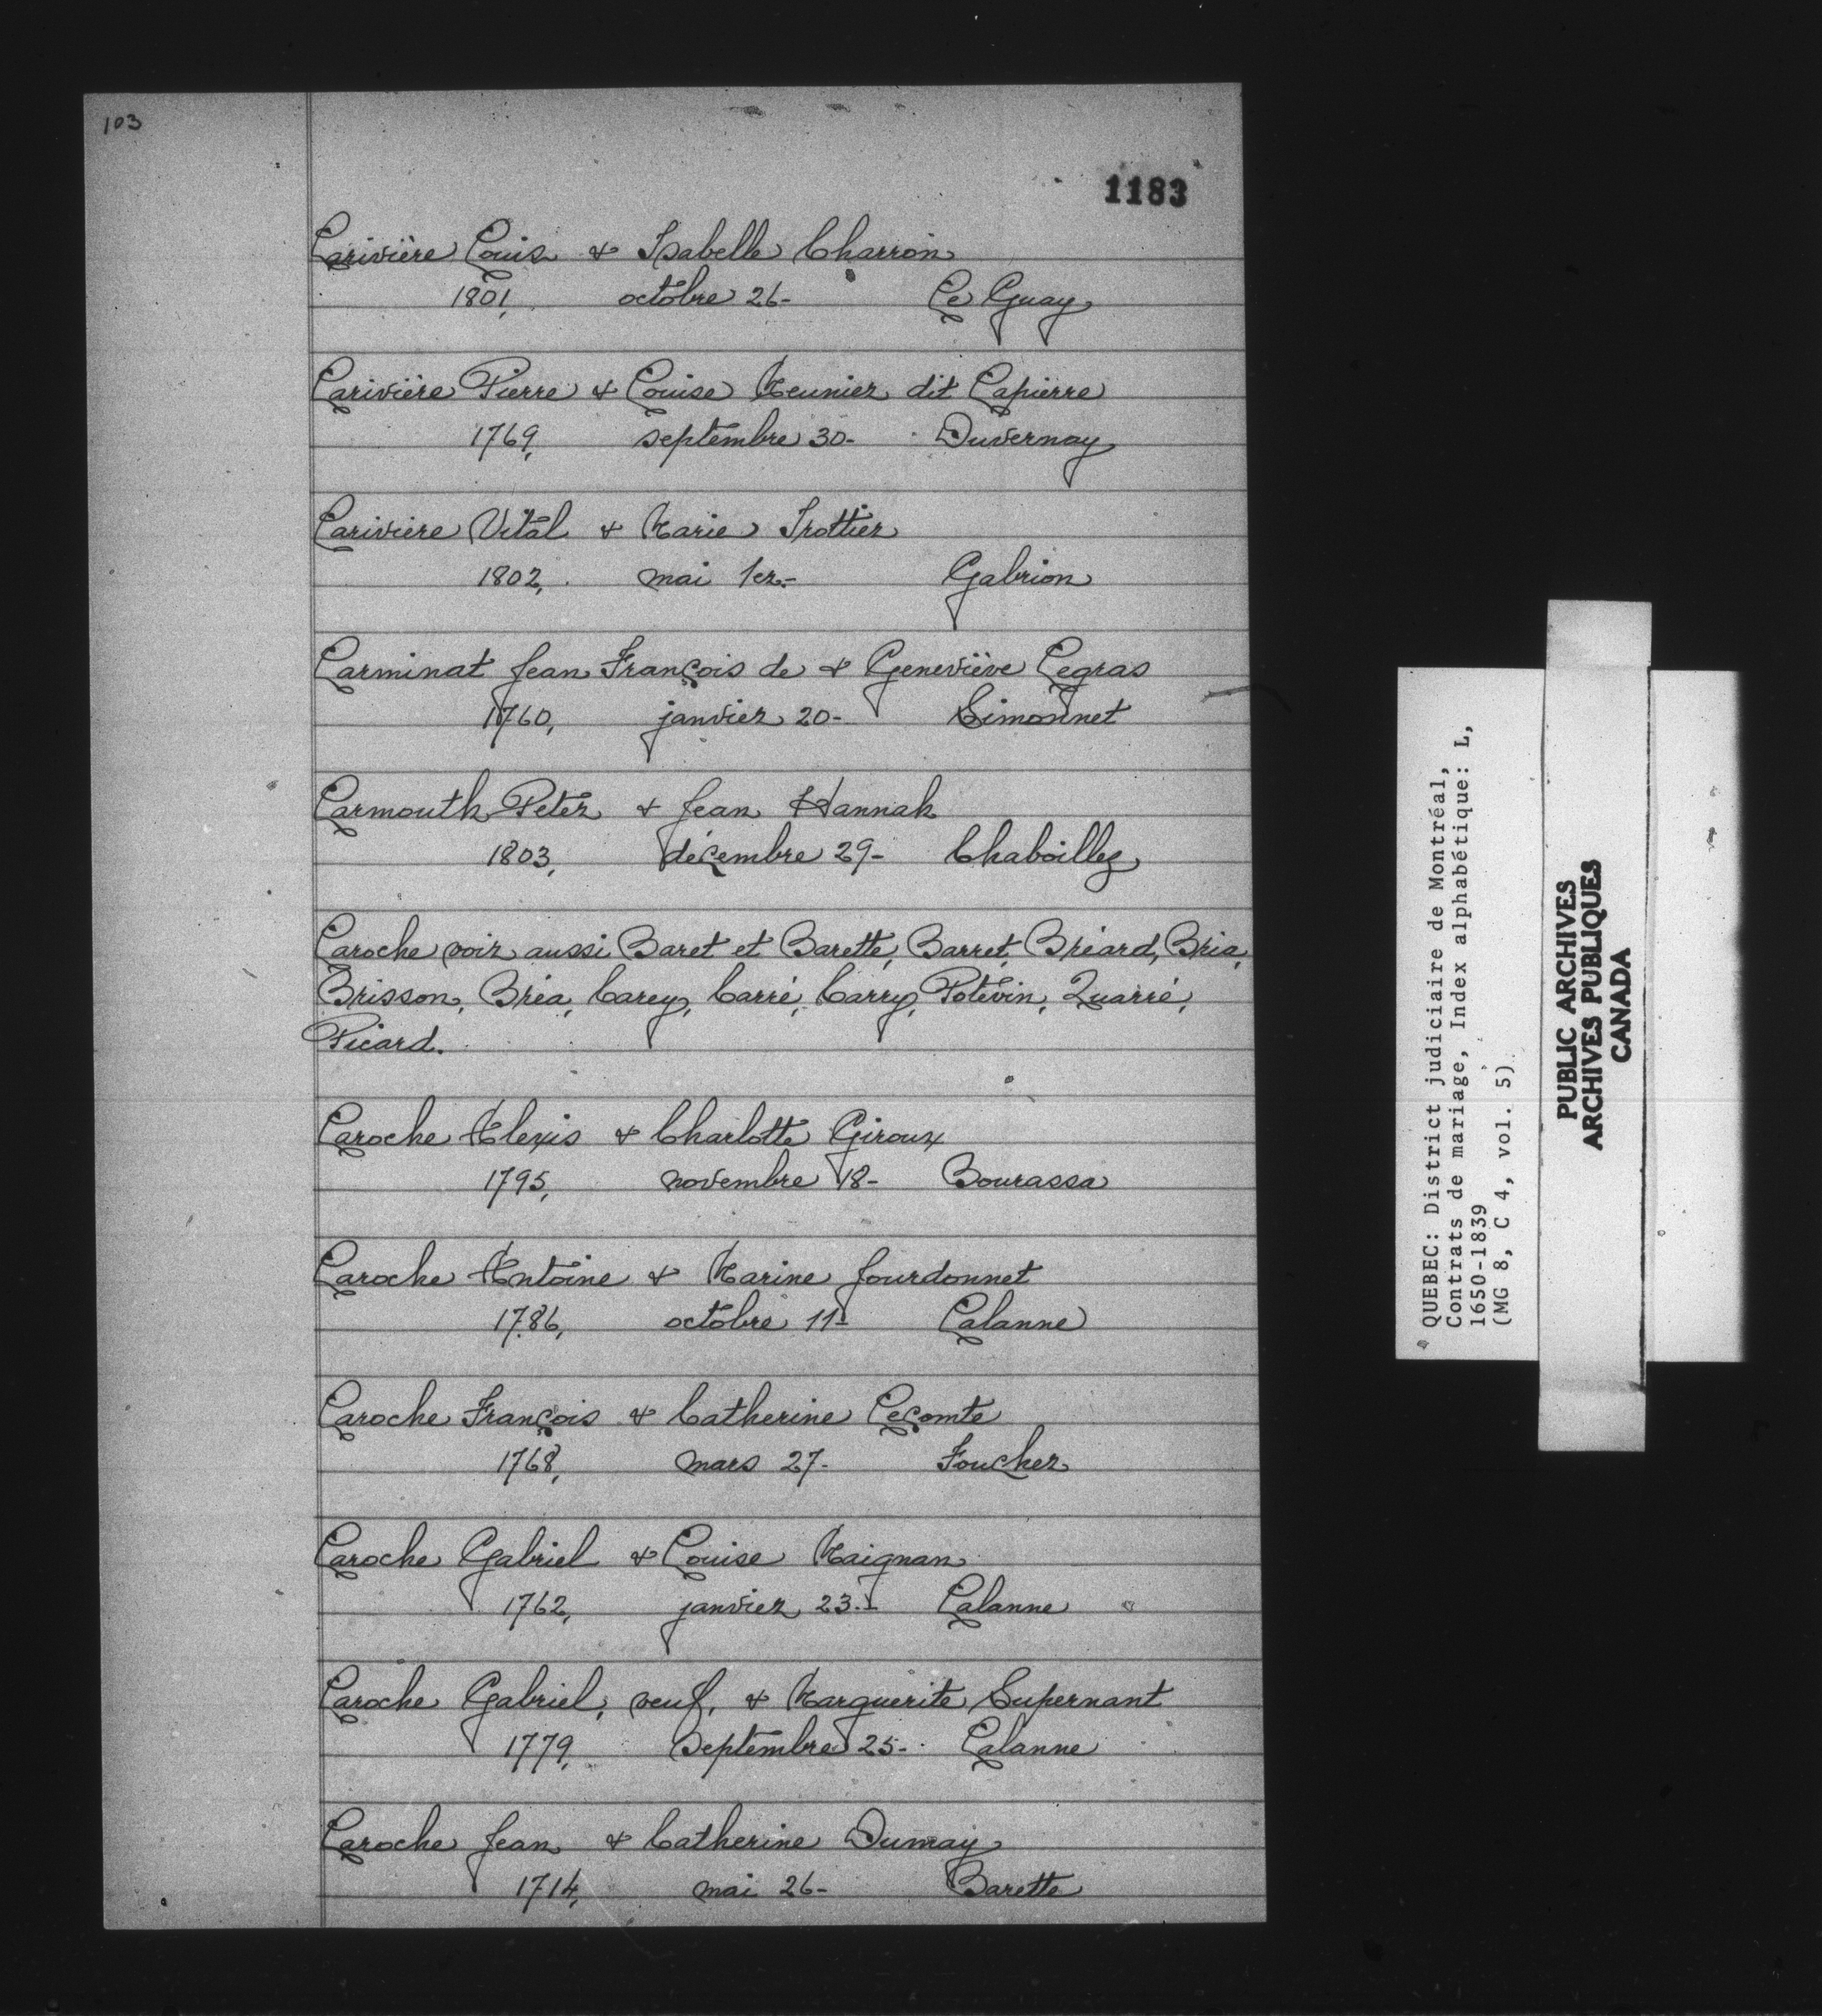 103
1183
Larivière Louis & Isabelle Charron
1801, octobre 26- Le Guay
Larivière Pierre & Louise Meunier dit Lapierre
1769, septembre 30- Duvernay
Lariviere Vital & Marie Trottier
1802, mai 1er.- Gabrion
Larminat Jean François de & Geneviève Legras
1760, janvier 20- Simonnet
Larmouth Peter & Jean Hannah
1803, décembre 29- Chaboillez
Laroche voir aussi Baret et Barette, Barret, Bréard, Bria,
Brisson, Bréa, Carey, Carré, Carry, Potevin, Quarré,
Picard.
Laroche Alexis & Charlotte Giroux
1795, novembre 18- Bourassa
Laroche Antoine & Marine Jourdonnet
1786, octobre 11- Lalanne
Laroche François & Catherine Lecomte
1768, mars 27- Foucher
Laroche Gabriel & Louise Maignan
1762, janvier 23.- Lalanne
Laroche Gabriel, veuf, & Marguerite Supernant
1779, septembre 25- Lalanne
Laroche Jean & Catherine Dumay
1714, mai 26- Barette
QUEBEC: District judiciaire de Montréal,
Contrats de mariage, Index alphabétique: L,
1650-1839
(MG 8, C 4, vol. 5)
PUBLIC ARCHIVES
ARCHIVES PUBLIQUES
CANADA